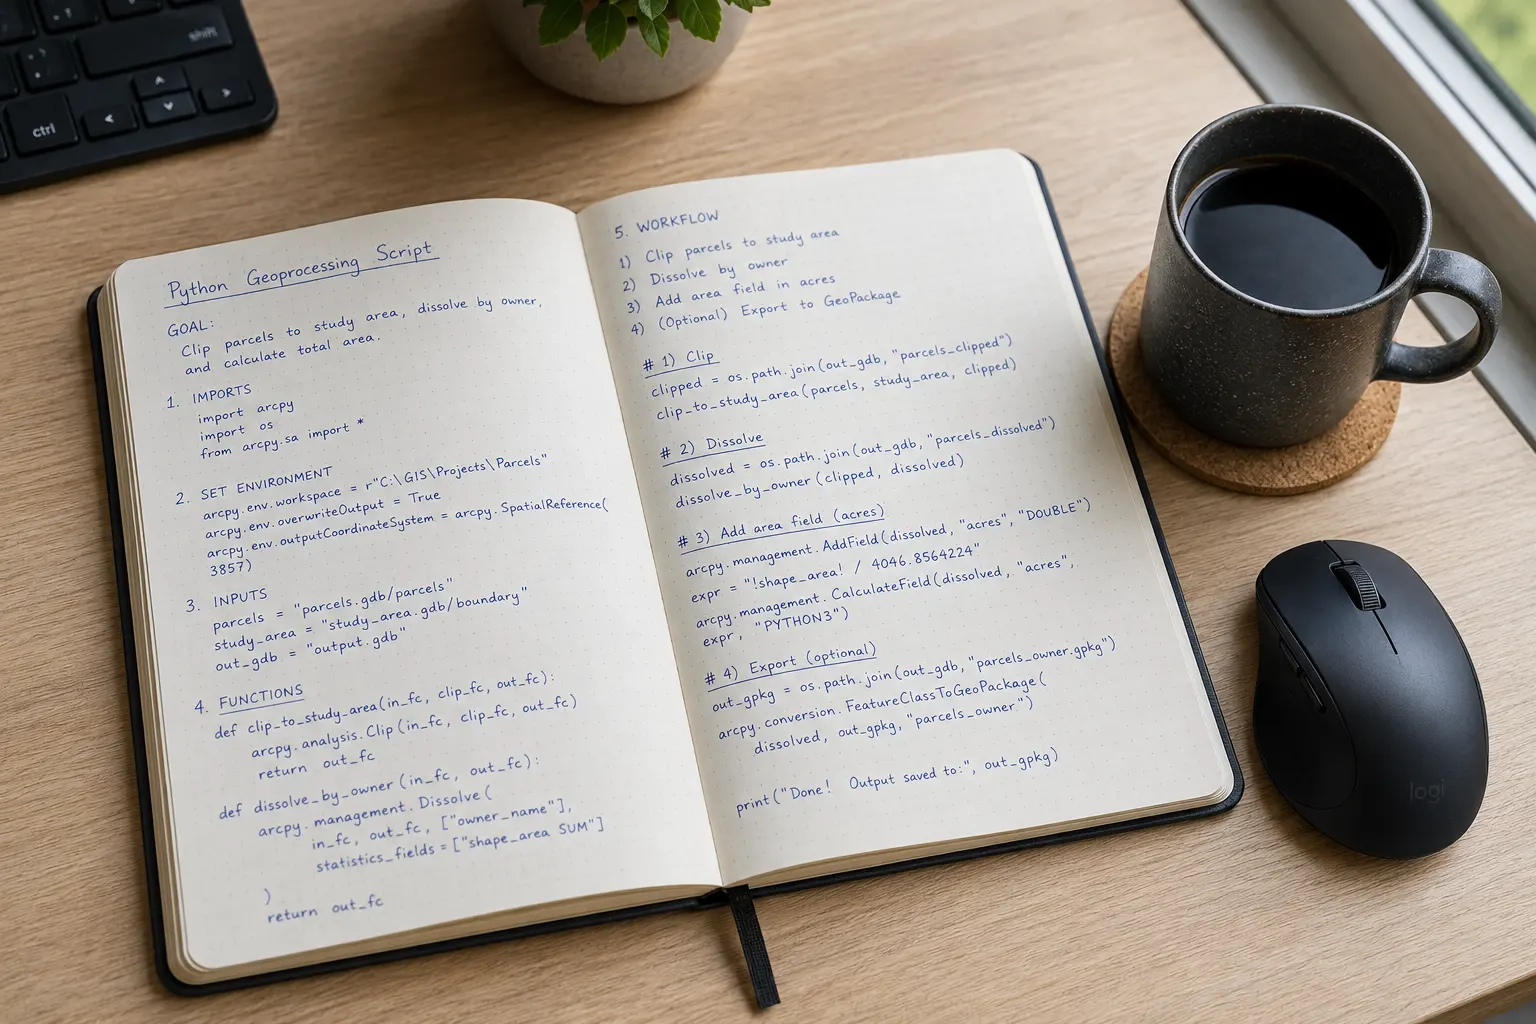 Python Geoprocessing Script
GOAL:
Clip parcels to study area, dissolve by owner,
and calculate total area.
1. IMPORTS
import arcpy
import os
from arcpy.sa import *
2. SET ENVIRONMENT
arcpy.env.workspace = r"C:\GIS\Projects\Parcels"
arcpy.env.overwriteOutput = True
arcpy.env.outputCoordinateSystem = arcpy.SpatialReference(
3857)
3. INPUTS
parcels = "parcels.gdb/parcels"
study_area = "study_area.gdb/boundary"
out_gdb = "output.gdb"
4. FUNCTIONS
def clip_to_study_area(in_fc, clip_fc, out_fc):
arcpy.analysis.Clip(in_fc, clip_fc, out_fc)
return out_fc
def dissolve_by_owner(in_fc, out_fc):
arcpy.management.Dissolve(
in_fc, out_fc, ["owner_name"],
statistics_fields = ["shape_area SUM"]
)
return out_fc
5. WORKFLOW
1) Clip parcels to study area
2) Dissolve by owner
3) Add area field in acres
4) (Optional) Export to GeoPackage
# 1) Clip
clipped = os.path.join(out_gdb, "parcels_clipped")
clip_to_study_area(parcels, study_area, clipped)
# 2) Dissolve
dissolved = os.path.join(out_gdb, "parcels_dissolved")
dissolve_by_owner(clipped, dissolved)
# 3) Add area field (acres)
arcpy.management.AddField(dissolved, "acres", "DOUBLE")
expr = "!shape_area! / 4046.8564224"
arcpy.management.CalculateField(dissolved, "acres",
expr, "PYTHON3")
# 4) Export (optional)
out_gpkg = os.path.join(out_gdb, "parcels_owner.gpkg")
arcpy.conversion.FeatureClassToGeoPackage(
dissolved, out_gpkg, "parcels_owner")
print("Done! Output saved to:", out_gpkg)
shift
ctrl
logi